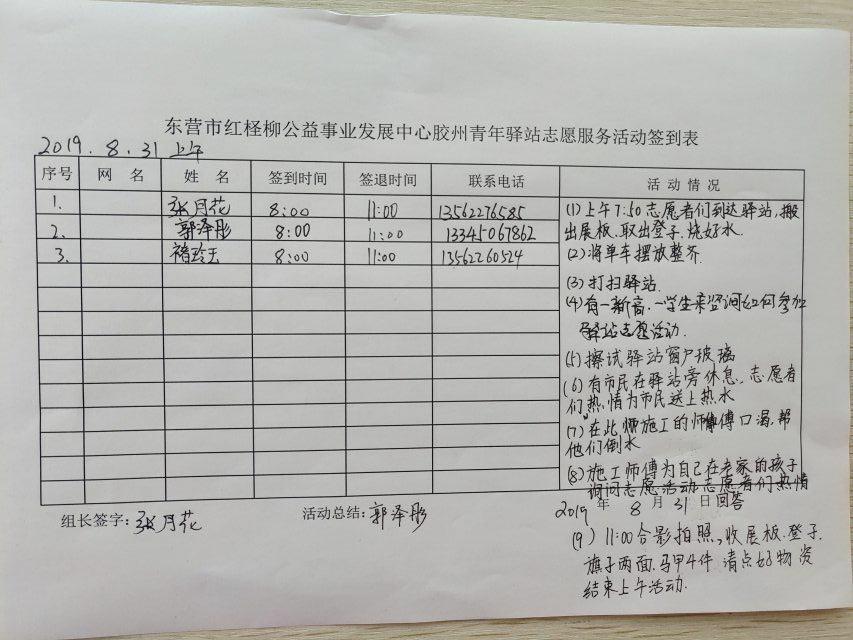 东营市红柽柳公益事业发展中心胶州青年驿站志愿服务活动签到表
2019.8.31 上午
序号 网 名 姓 名 签到时间 签退时间 联系电话 活 动 情 况
1. 张月花 8:00 11:00 13562276585
2. 郭泽彤 8:00 11:00 13345067862
3. 褚玲玉 8:00 11:00 13562260524
(1)上午7:50志愿者们到达驿站,搬
出展板.取出登子.烧好水.
(2)将单车摆放整齐.
(3)打扫驿站.
(4)有一新高.一学生来咨询如何参加
驿站志愿活动.
(5)擦试驿站窗户玻璃
(6)有市民在驿站旁休息,志愿者
们热情为市民送上热水
(7)在此施工的师傅口渴,帮
他们倒水
(8)施工师傅为自己在老家的孩子
询问志愿活动志愿者们热情
回答
组长签字:张月花 活动总结:郭泽彤 2019年 8月 31日
(9)11:00合影拍照,收展板.登子.
旗子两面.马甲4件 清点好物资
结束上午活动.